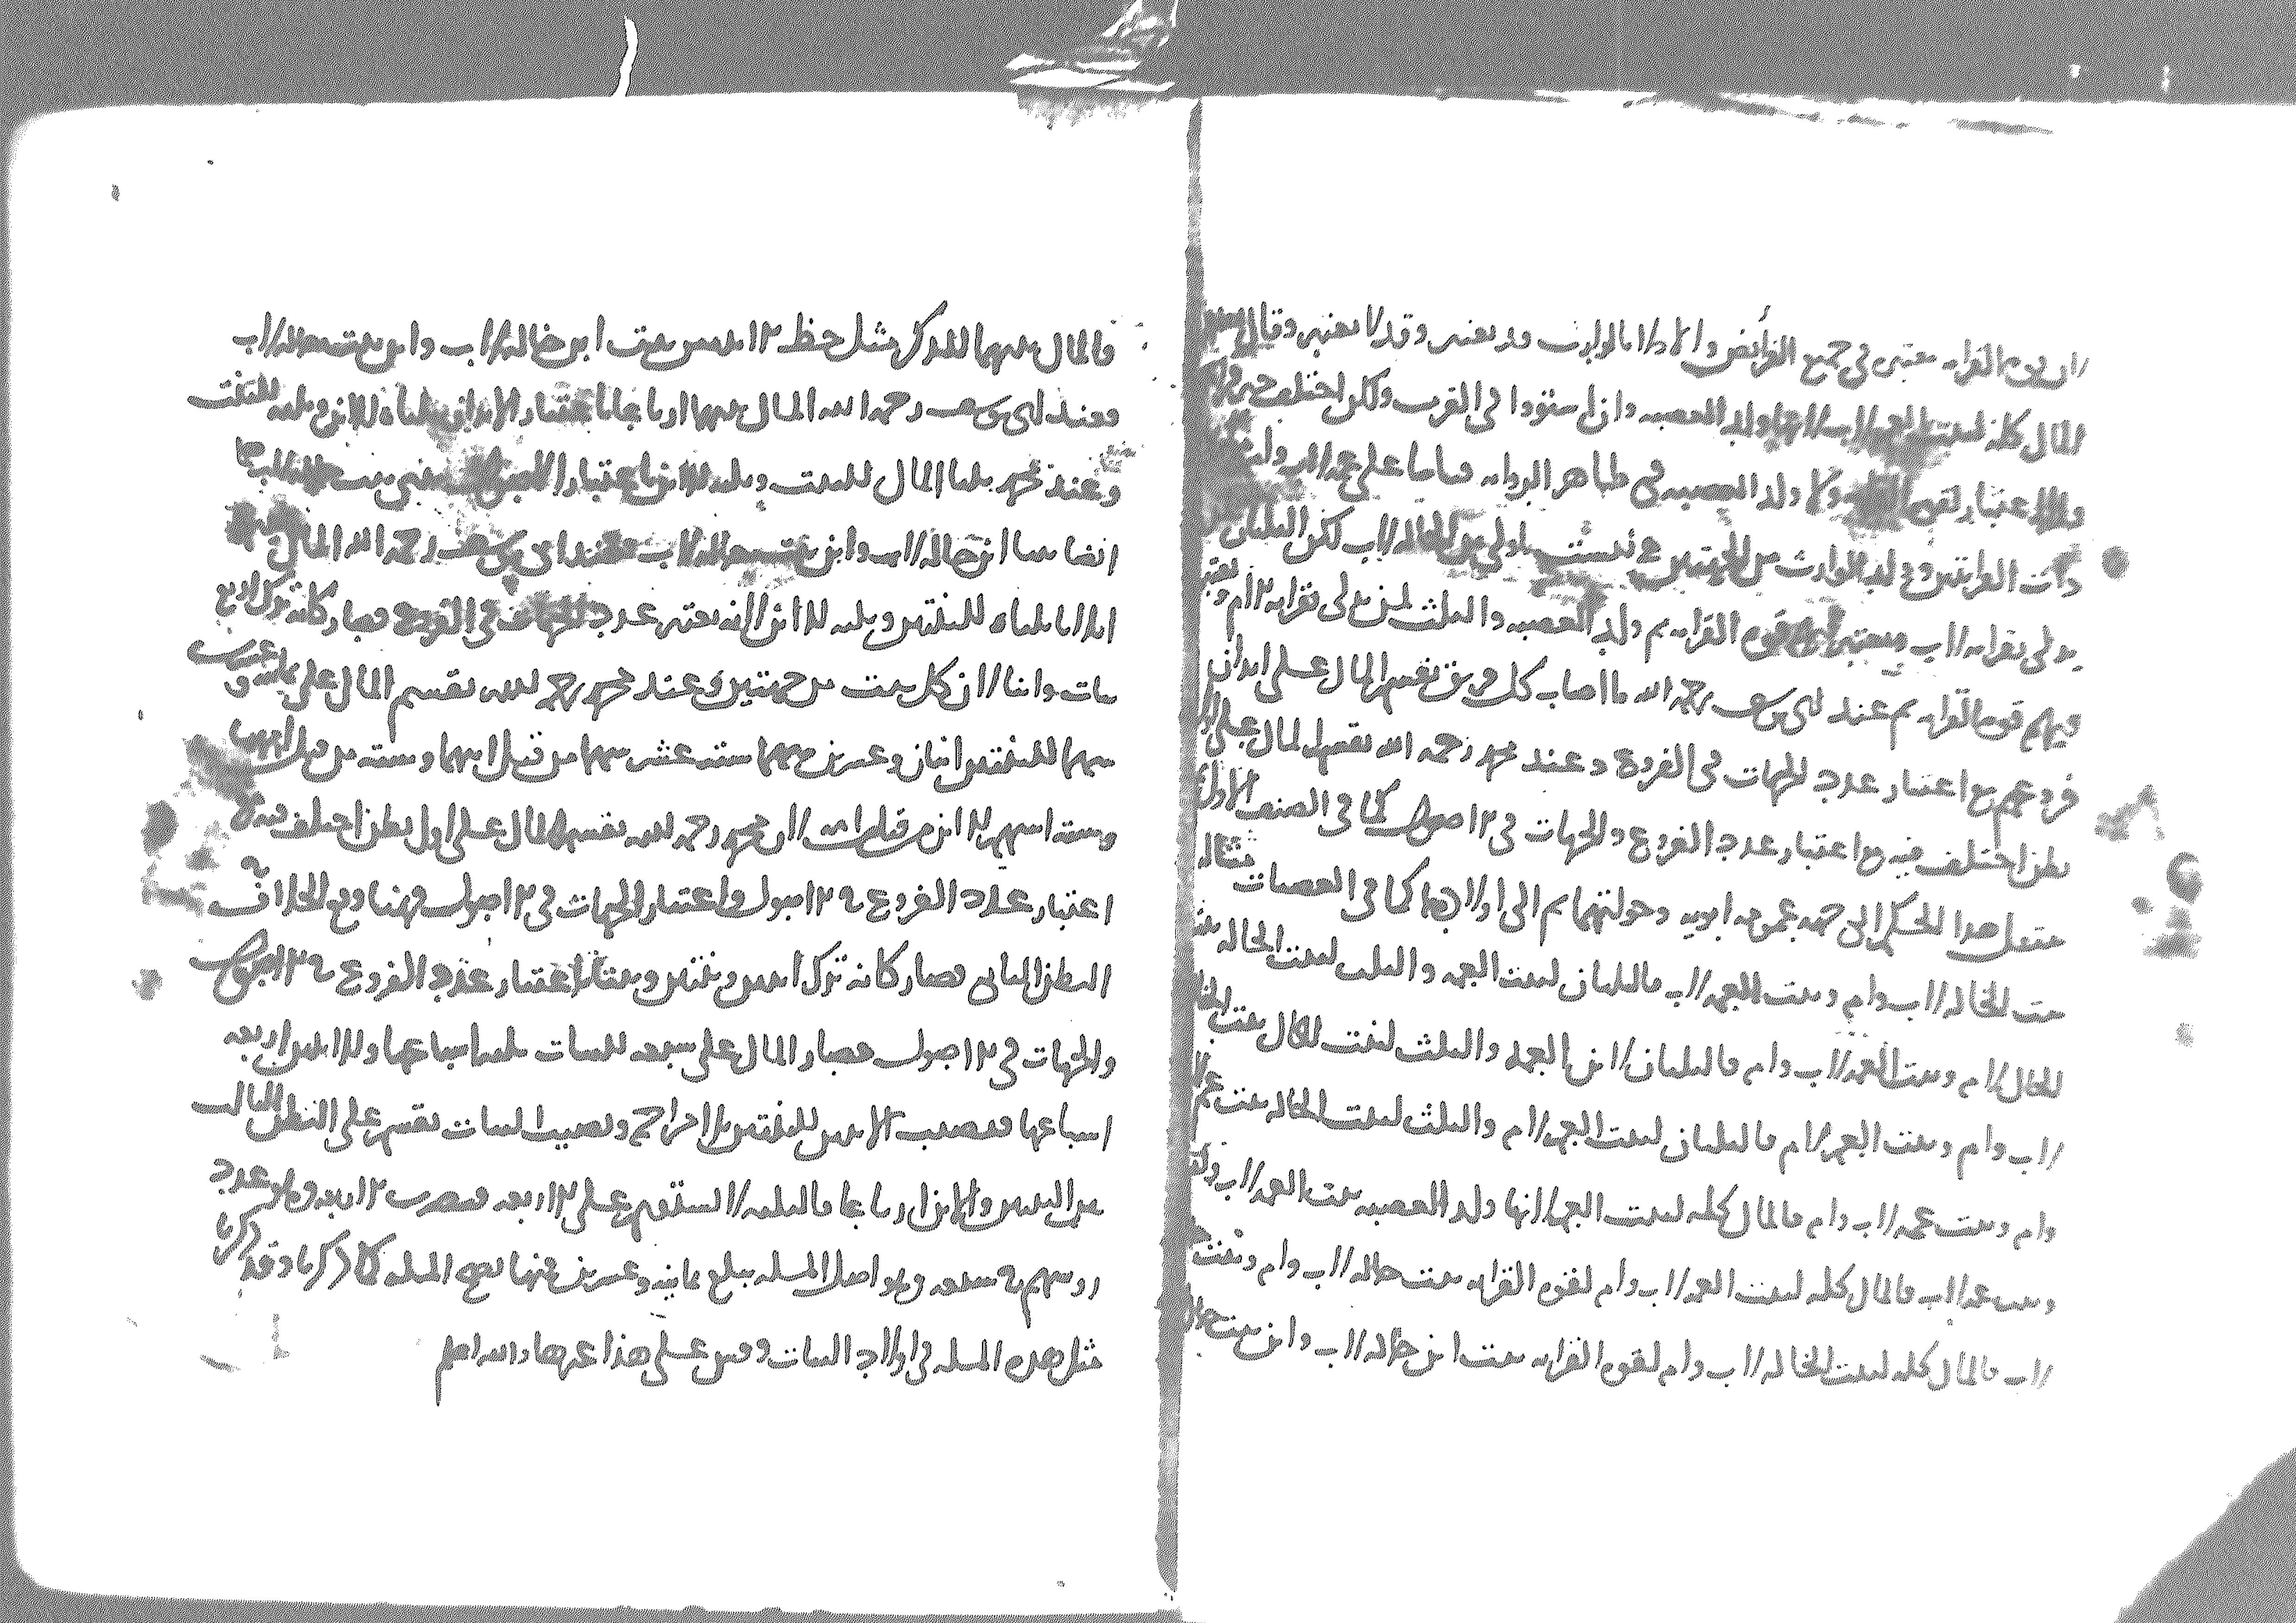 لان قوة القرابة معتبرة في جميع الفرائض والادلاء بالوارث قد يعتبر وقد لا يعتبر وقال بعضهم
المال كله لبنت العم لاب لانها ولد العصبة وان استووا في القرب ولكن اختلف حيز قرابتهم
فلا اعتبار لقوة القرابة ولا ولد العصبة في ظاهر الرواية قياسا على عمة لاب وام
ذات القرابتين وولد الوارث من الجهتين هي ليست باولى من الخالة لاب لكن الثلثان
يدلى بقرابة الاب ويعتبر فيهم قوة القرابة ثم ولد العصبة والثلث لمن يدلى بقرابة الام ويعتبر
فيهم قوة القرابة ثم عند ابي يوسف رحمه الله ما اصاب كل فريق يقسم المال على ابدان
فروعهم مع اعتبار عدد الجهات في الفروع وعند محمد رحمه الله يقسم المال على اول
بطن اختلف فيه مع اعتبار عدد الفروع والجهات في الاصول كما في الصنف الاول
ينتقل هذا الحكم الى جهة عمومة ابويه وخولتهما ثم الى اولادهم كما في العصبات مثاله
بنت الخالة لاب وام وبنت العمة لاب فالثلثان لبنت العمة والثلث لبنت الخالة بنت
الخال لام وبنت العمة لاب وام فالثلثان لابن العمة والثلث لبنت الخال بنت الخالة
لاب وام وبنت العم لام فالثلثان لبنت العم لام والثلث لبنت الخالة بنت عم لاب
وام وبنت عمة لاب وام فالمال كله لبنت العم لانها ولد العصبة بنت العمة لاب وام
وبنت عمة لاب فالمال كله لبنت العمة لاب وام لقوة القرابة بنت خالة لاب وام وبنت خالة
لاب فالمال كله لبنت الخالة لاب وام لقوة القرابة بنت ابن خالة لاب وابن بنت خالة
فالمال بينهما للذكر مثل حظ الانثيين بنت ابن خالة لاب وابن بنت خالة لاب
فعند ابي يوسف رحمه الله المال بينهما ارباعا باعتبار الابدان ثلثاه للابن وثلثه للبنت
وعند محمد ثلثا المال للبنت وثلثه للابن باعتبار الاصول بنتي بنت خالة لاب هما
ايضا بنتا ابن خالة لاب وابن بنت خالة لاب فعند ابي يوسف رحمه الله المال بينهم
اثلاثا ثلثاه للبنتين وثلثه للابن لانه يعتبر عدد الجهات في الفروع فصار كانه ترك اربع
بنات وابنا لان كل بنت من جهتين وعند محمد رحمه الله يقسم المال على ثمانية وعشرين
سهما للبنتين اثنان وعشرين سهما ستة عشر سهما من قبل ابيهما وستة من قبل امهما
وستة اسهم للابن من قبل امه لان محمد رحمه الله يقسم المال على اول بطن اختلف فيه مع
اعتبار عدد الفروع في الاصول واعتبار الجهات في الاصول فههنا وقع الخلاف في
البطن الثاني فصار كانه ترك ابنين وبنتين وبنتا باعتبار عدد الفروع في الاصول
والجهات في الاصول فصار المال على سبعة للبنات ثلثة اسباعها وللابنين اربعة
اسباعها فنصيب الابنين للبنتين بلا مزاحم ونصيب البنات يقسم على البطن الثالث
بين البنتين والابن ارباعا فالثلثة لا تستقيم على الاربعة فضربت الاربعة وهو عدد
روسهم في سبعة وهو اصل المسئلة يبلغ ثمانية وعشرين فمنها تصح المسئلة كما ذكرنا وقد ذكرنا
مثل هذه المسئلة في اولاد البنات وقس على هذا غيرها والله اعلم